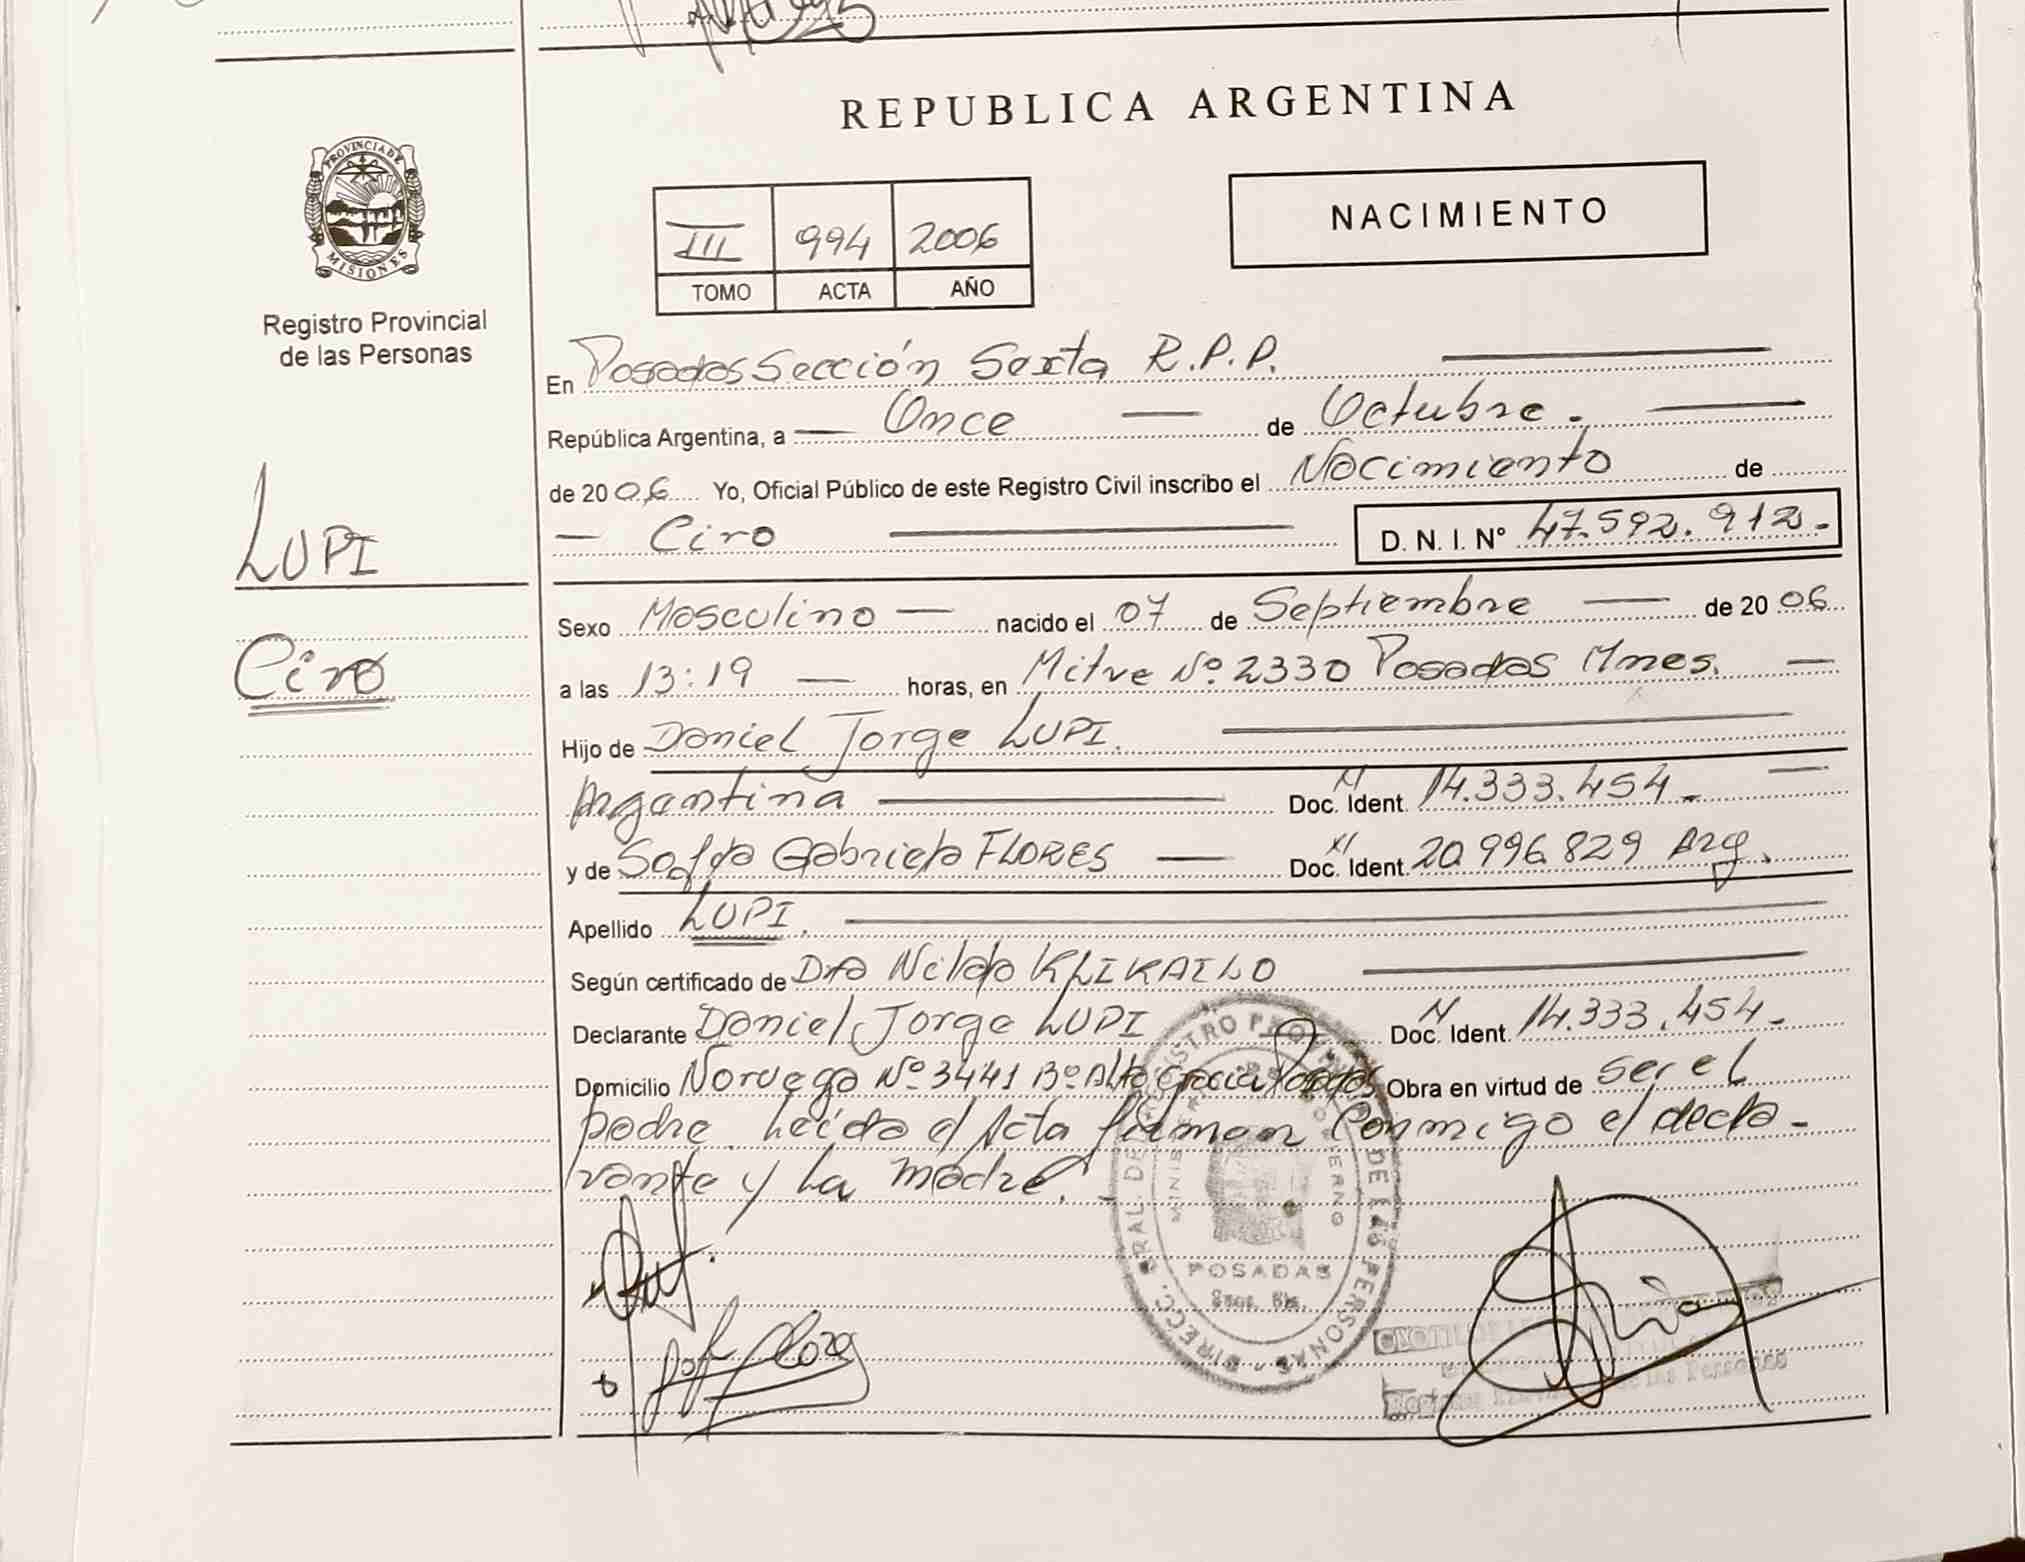 REPUBLICA ARGENTINA
PROVINCIA DE
MISIONES
Registro Provincial
de las Personas
III 994 2006
TOMO ACTA AÑO
NACIMIENTO
En Posadas Sección Sexta R.P.P.
República Argentina, a Once de Octubre.
de 2006 Yo, Oficial Público de este Registro Civil inscribo el Nacimiento de
LUPI
Ciro D. N. I. N° 47.592.912.-
Sexo Masculino nacido el 07 de Septiembre de 2006
Ciro
a las 13:19 horas, en Mitre Nº 2330 Posadas Mnes.
Hijo de Daniel Jorge LUPI.
Argentina Doc. Ident. M 14.333.454.-
y de Gabriela FLORES Doc. Ident. 20.996.829 Arg.
Apellido LUPI.
Según certificado de Dra Nilda KLIKAILO
Declarante Daniel Jorge LUPI Doc. Ident. M 14.333.454.-
Domicilio Noruega Nº 3441 Bº Alta Gracia Posadas Obra en virtud de ser el
padre. Leída el Acta firman Conmigo el decla-
rante y La madre.
DIRECC. GRAL. DE REGISTRO PROVINCIAL DE LAS PERSONAS
POSADAS